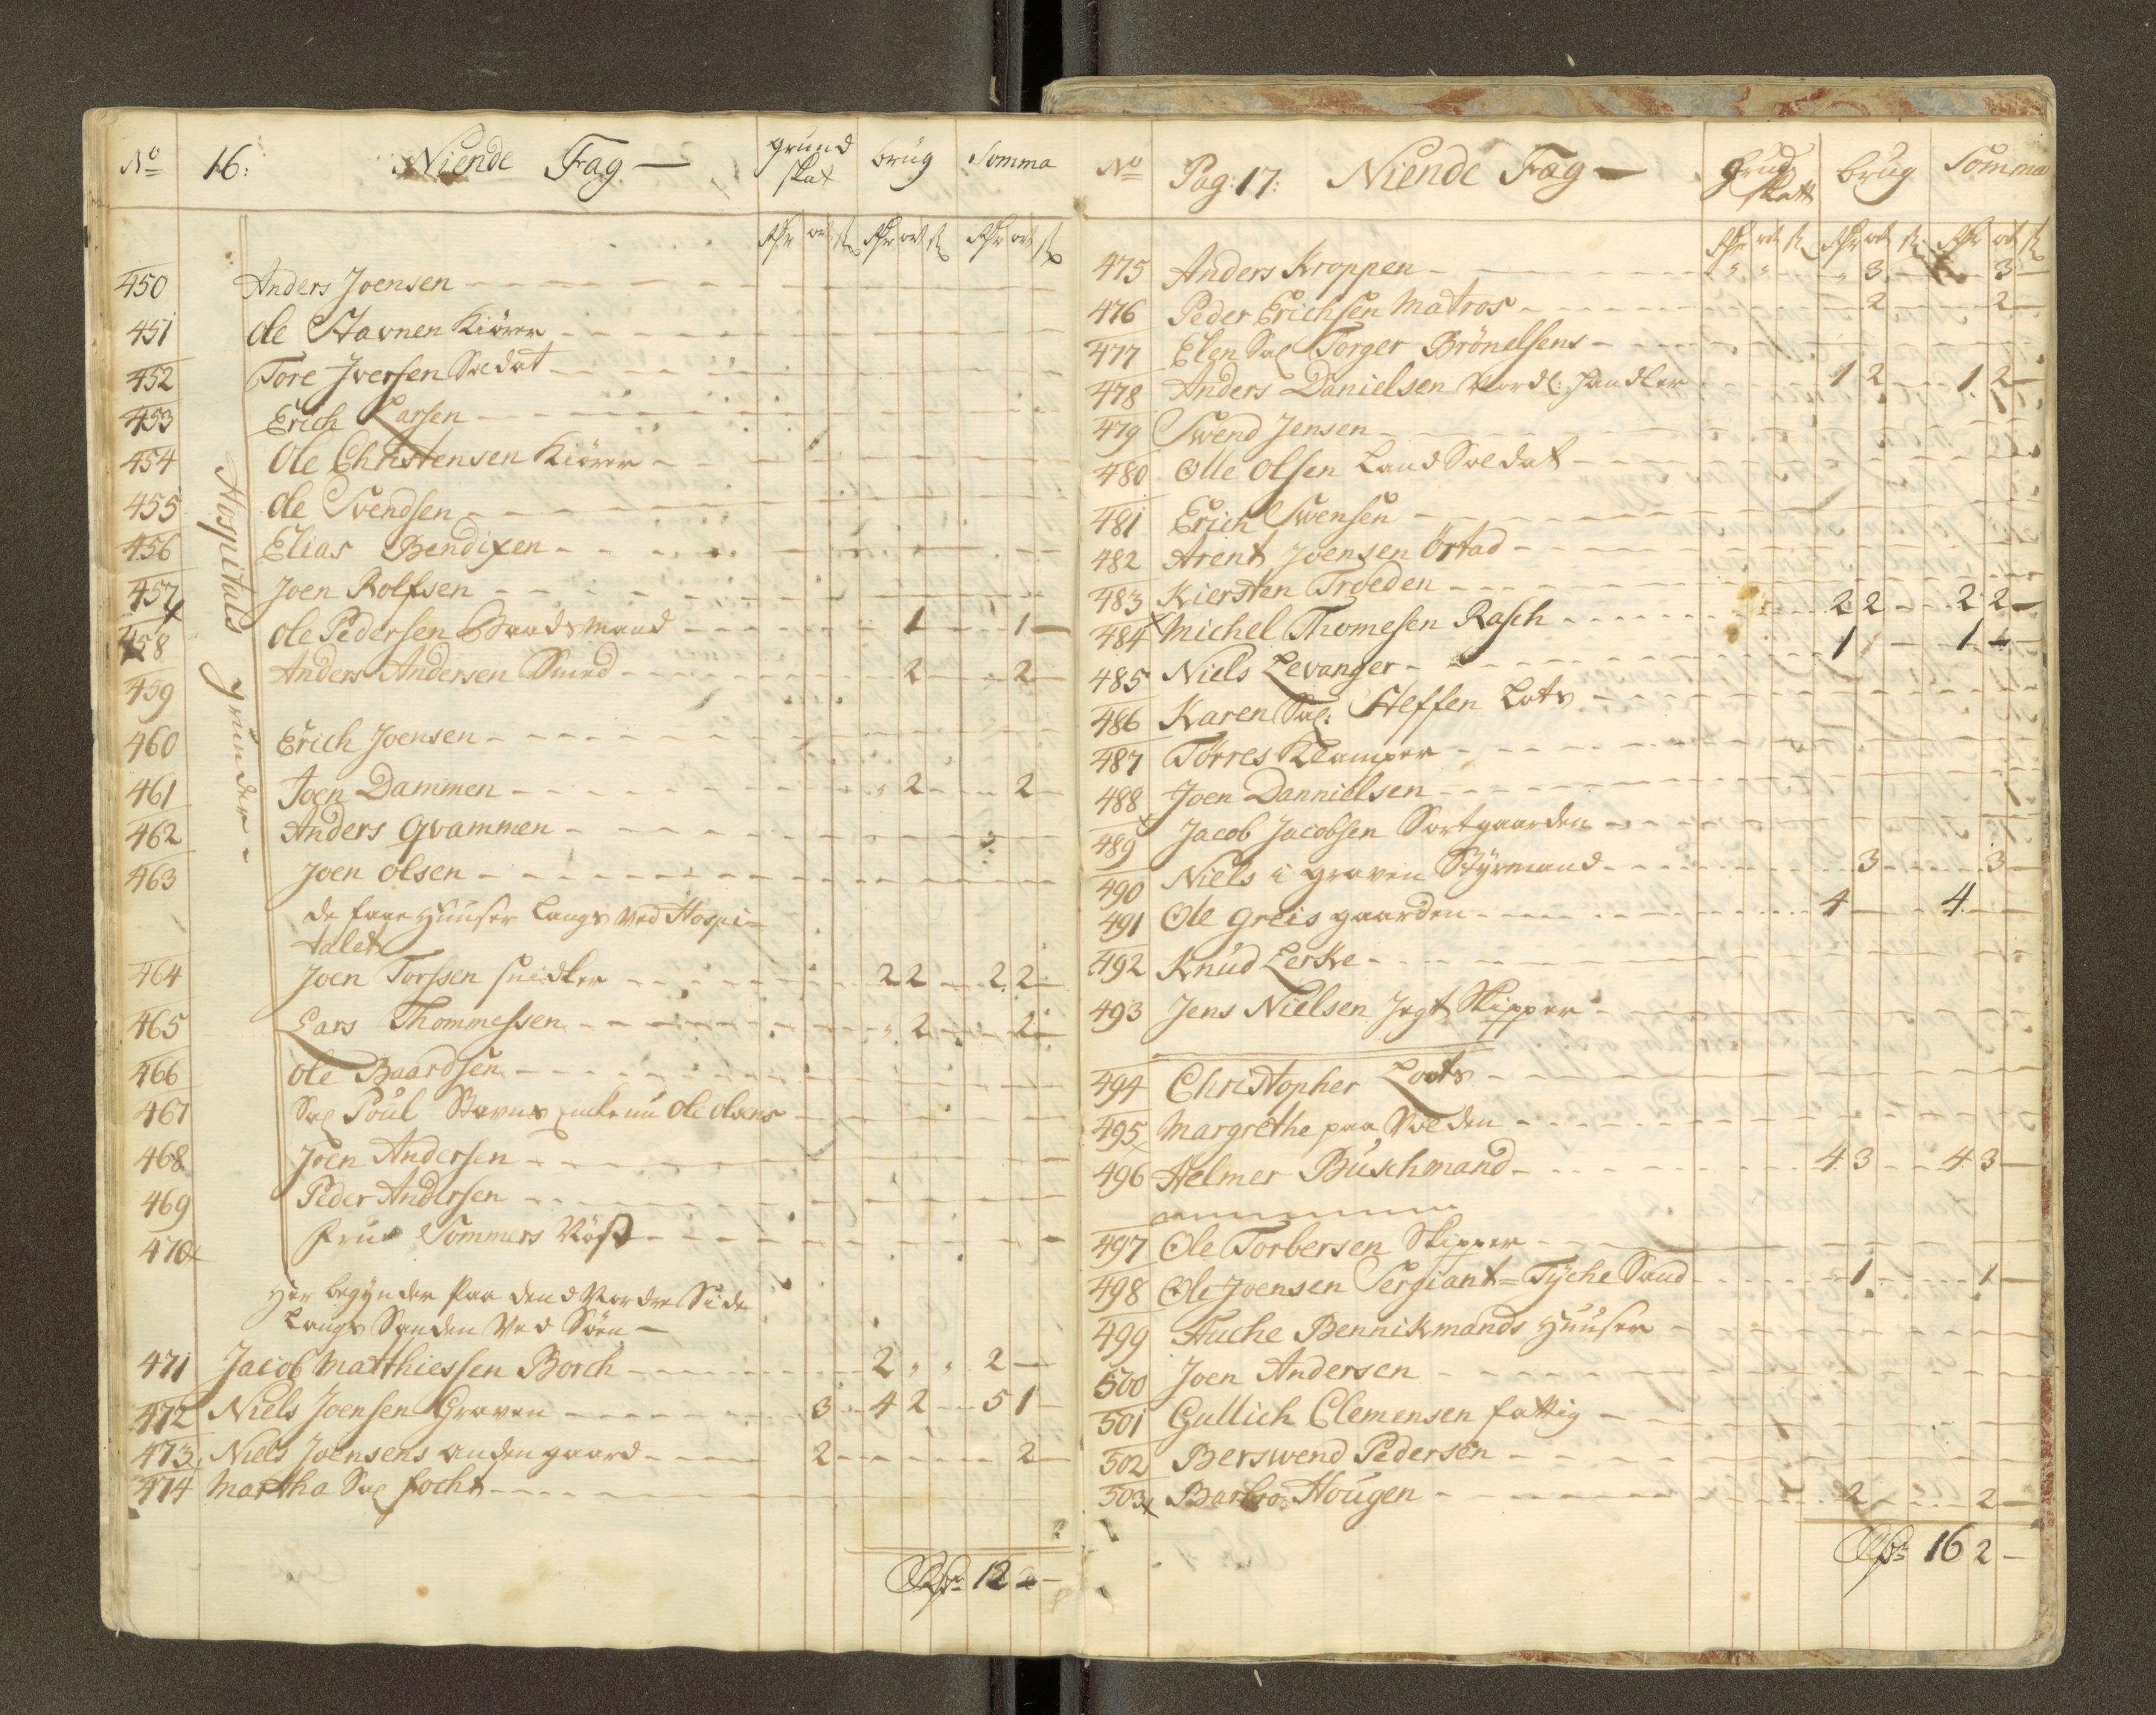 No 16: Niende Fag — grund skat brug Somma
Rdr ort s Rdr ort s Rdr ort s
Hospitals grunder -
450 Anders Joensen
451 Ole Stavnen Kiører
452 Tore Iversen Soldat
453 Erich Larsen
454 Ole Christensen Kiører
455 Ole Svendsen
456 Elias Bendixen
457 Joen Rolfsen
458 Ole Pedersen Baadsmand 1 — 1 —
459 Anders Andersen Smed 2 — 2 —
460 Erich Joensen
461 Joen Dammen 2 — 2 —
462 Anders Qvammen
463 Joen Olsen
de faae Huuser langs ved Hospi=
talet
464 Joen Torssen snidker 2 2 — 2 2 —
465 Lars Thommessen 2 — 2 —
466 Ole Baardsen
467 Sal Poul Stavns enke nu Ole Olsens
468 Joen Andersen
469 Peder Andersen
470 Frue Sommers
Her begynder Paa dend Nordre Side
Langs Sanden Ved Søen —
471 Jacob Matthiessen Borch 2 " " 2 —
472 Niels Joensen Graven 3 4 2 — 5 1 —
473 Niels Joensens anden gaard 2 — 2 —
474 Martha Sal focht
Rdr 12 2 —
No Pag: 17: Niende Fag — Grund skatt brug Somma
Rdr ort s Rdr ort s Rdr ort s
475 Anders Kroppen " " " 3 — 3 —
476 Peder Erichsen Matros 2 — 2 —
477 Elen Sal Torger Brönelsens
478 Anders Danielsen Nordl: handler 1 2 — 1 2 —
479 Swend Jensen
480 Olle Olsen Land Soldat
481 Erich Swensen
482 Arent Joensen Örtad
483 Kiersten Troeden
484 Michel Thomesen Rasch 2 2 — 2 2 —
485 Niels Levanger 1 1 — 1 1 —
486 Karen Sal: Steffen Lots
487 Törres Klamper
488 Joen Dannielsen
489 Jacob Jacobsen Sortgaarden
490 Niels i graven Styrmand 3 — 3 —
491 Ole Greis gaarden 4 — 4 —
492 Knud Lerke
493 Jens Nielsen Jegt Skipper
494 Christopher Loots
495 Margrethe paa Volden
496 Helmer Buschmand 4 3 — 4 3 —
497 Ole Torbersen Skipper
498 Ole Joensen Sergiant = Tyche Sand 1 — 1 —
499 Auche Bennikmands Huuser
500 Joen Andersen
501 Gullich Clemensen fattig
502 Berswend Pedersen
503 Barbro Hougen 2 — 2 —
Rdr 16 2 —